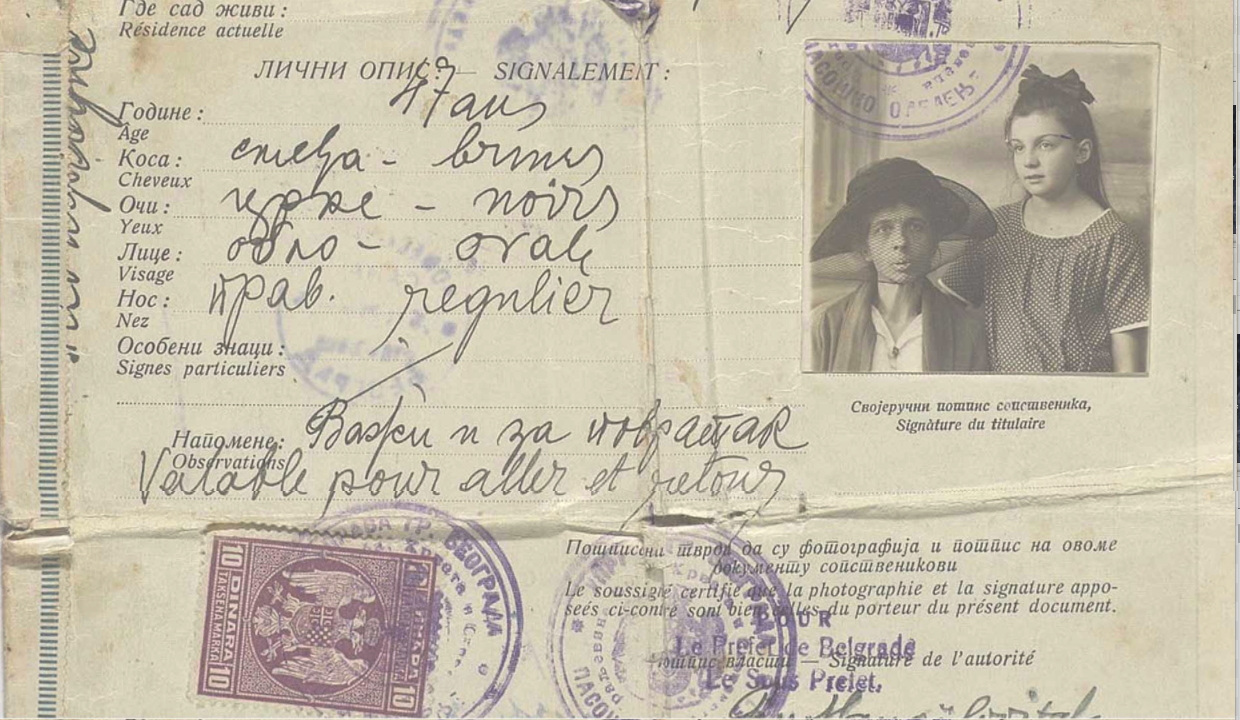 Где сад живи :
Résidence actuelle
ЛИЧНИ ОПИС : — SIGNALEMENT :
Године :
47 ans
Age
Коса :
смеђа - bruns
Cheveux
Очи :
црне - noirs
Yeux
Лице :
обло - ovale
Visage
Нос :
прав. regulier
Nez
Особени знаци :
Signes particuliers
Напомене :
Важи и за повратак
Observations
Valable pour aller et retour
Својеручни потпис сопственика,
Signàture du titulaire
ПАСОШКО ОДЕЉЕЊЕ
УПРАВА ГР. БЕОГРАДА
10 DINARA 10
TAKSENA MARKA
10 10
Потписани тврди да су фотографија и потпис на овоме
документу сопственикови
Le soussigié certifie que la photographie et la signature appo-
seés ci-contre sont bien celles du porteur du présent document.
POUR
Le Prefet de Belgrade
Потпис власти — Signature de l'autorité
Le Sous Prefet,